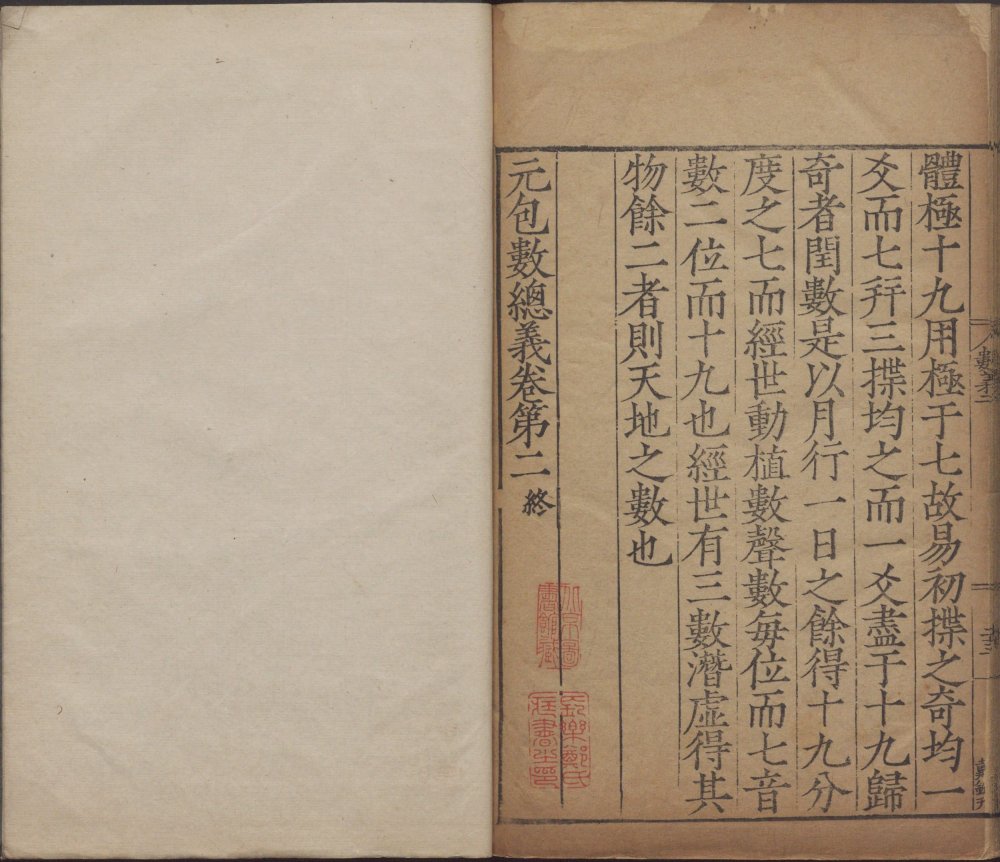 體極十九用極于七故易初揲之奇均一
爻而七幷三揲均之而一爻盡于十九歸
奇者閏數是以月行一日之餘得十九分
度之七而經世動植數聲數每位而七音
數二位而十九也經世有三數潛虛得其
物餘二者則天地之數也
元包數總義卷第二 終
北京圖書館藏
長樂鄭氏